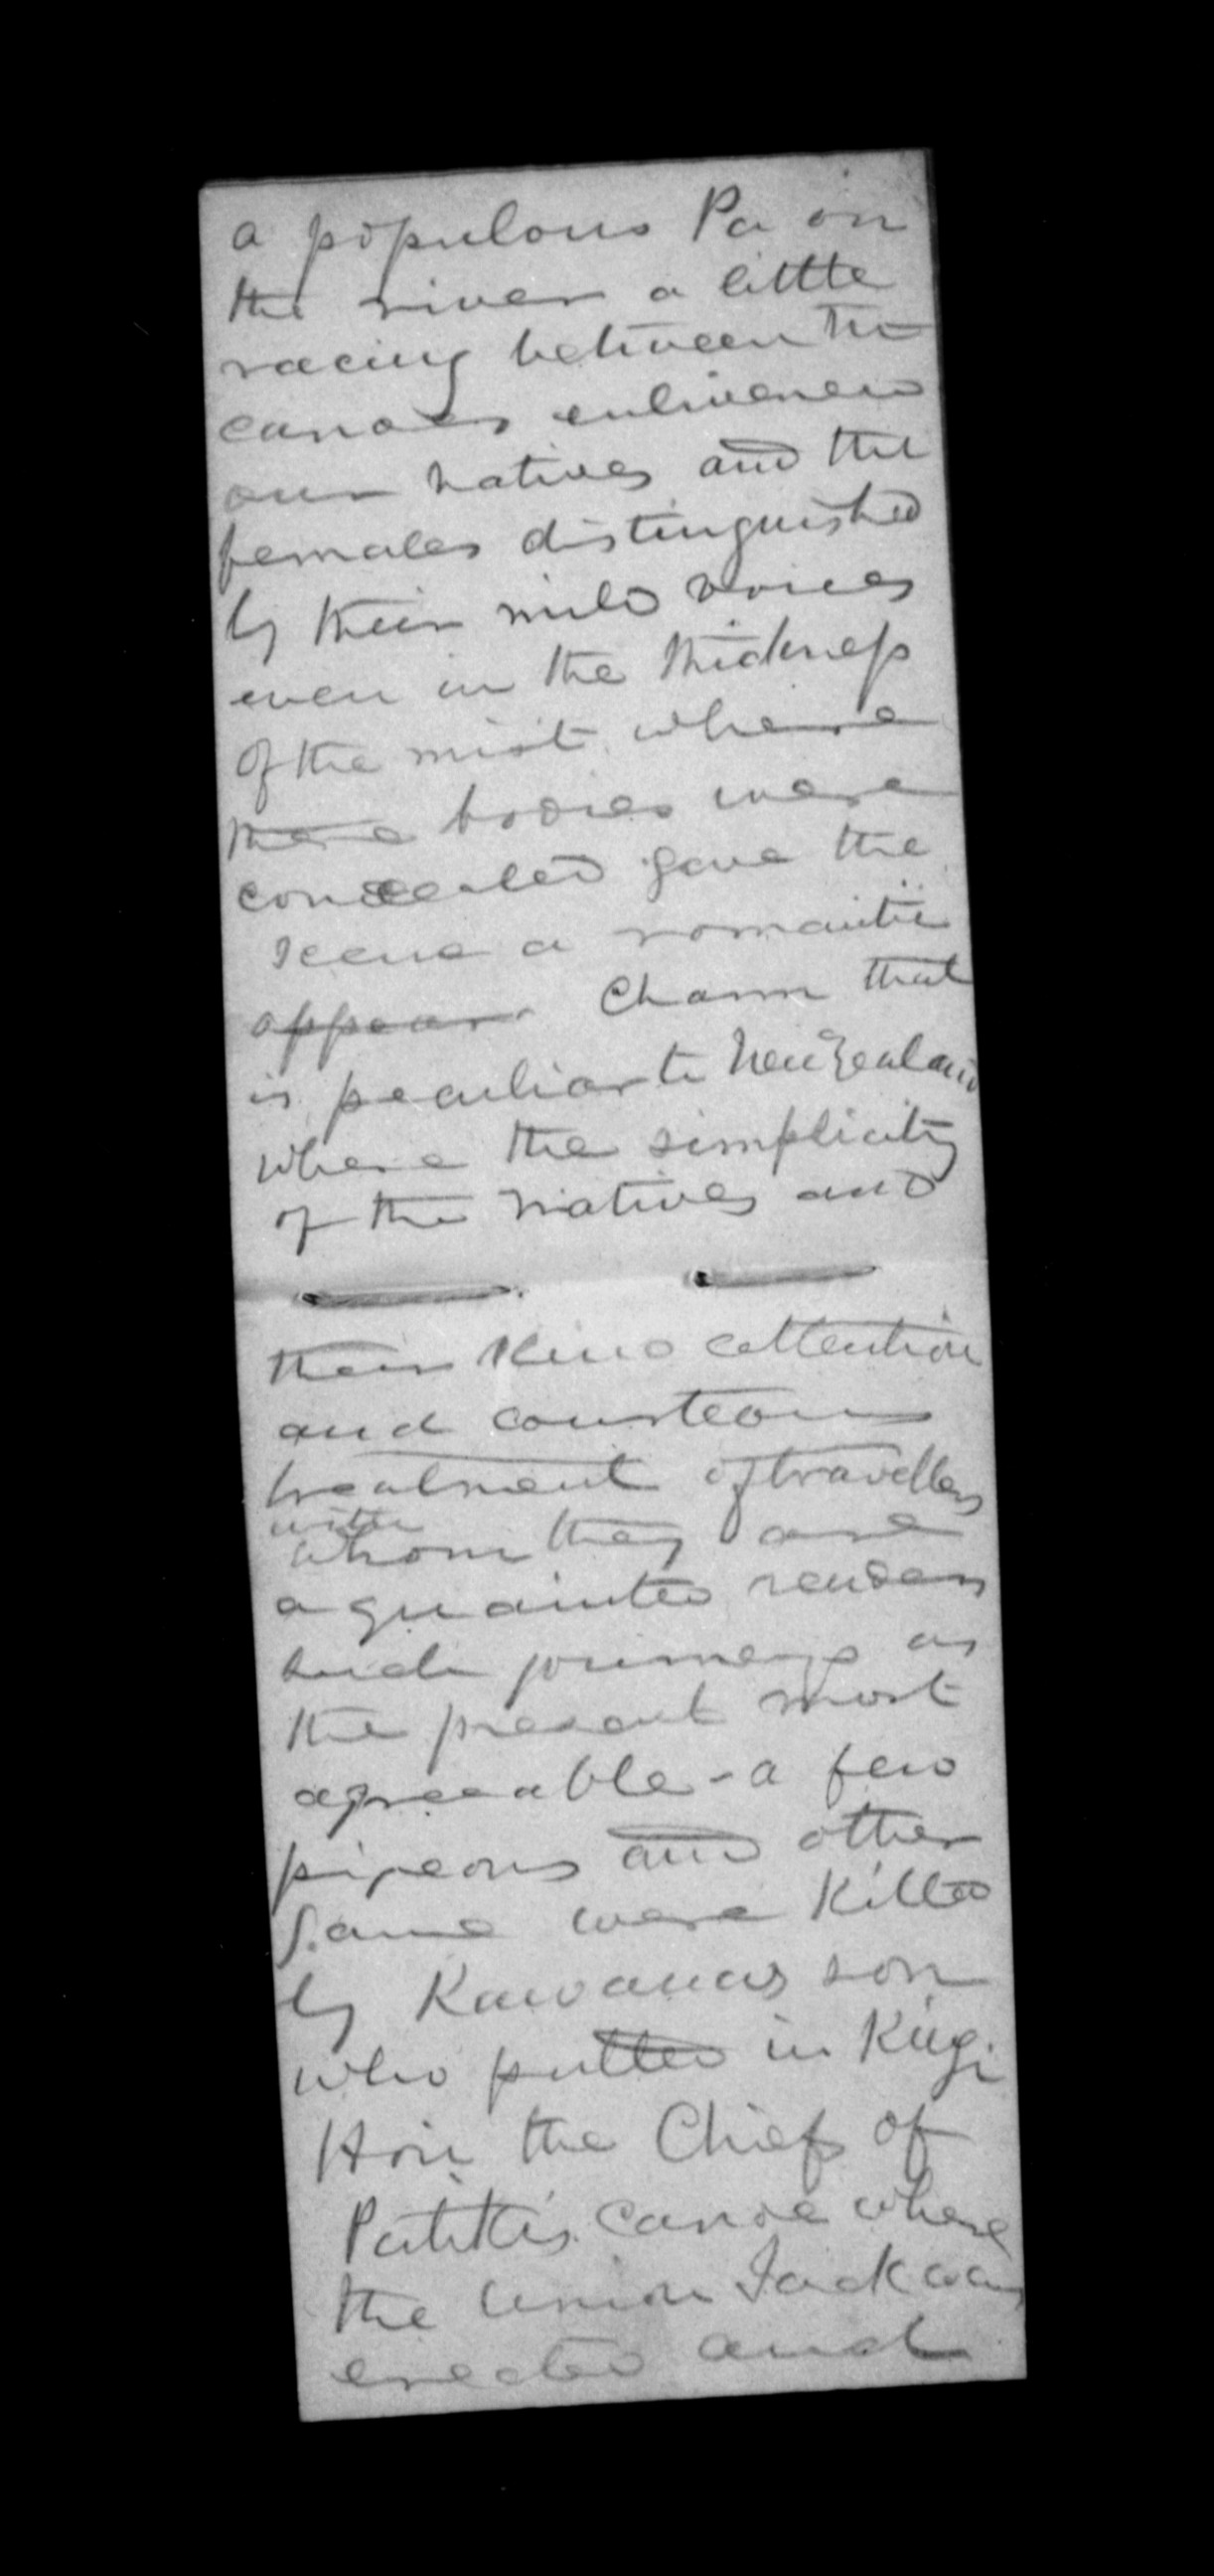 a populous Pa on
the river a little
racing between the
canoes enlivened
our natives and the
females distinguished
by their mild voices
even in the thickness
of the mist where
there bodies were
concealed gave the
scene a romantic
appear Charm that
is peculiar to New Zealand
where the simplicity
of the natives and
their kind attention
and courteous
treatment of travellers
with
whom they are
aquainted renders
such journeys as
the present most
agreeable - a few
pigeons and other
game were killed
by Kawanas son
who pulled in Kingi
Hori the Chief of
Patitis canoe where
the Union Jack was
erected and